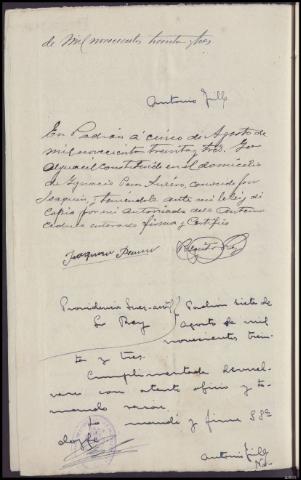 de mil novecientos treinta y tres.
Antonio
En Padrón a cinco de Agosto de
mil novecientos treinta y tres. Yo
alguacil constituido en el domicilio
de Ignacio conocido por
Joaquin, teniéndole ante mi le ley di
copia por mi autorizada de la anterior
cedula enterado firma y certifico
Joaquin
Providencia Juez
Sr Rey
Padron siete de
agosto de mil
novecientos trein-
ta y tres.
Cumplimentada devuel-
vase con atento oficio y to-
mando razon.
Lo mandó y firma SSª
doy fé
Antonio